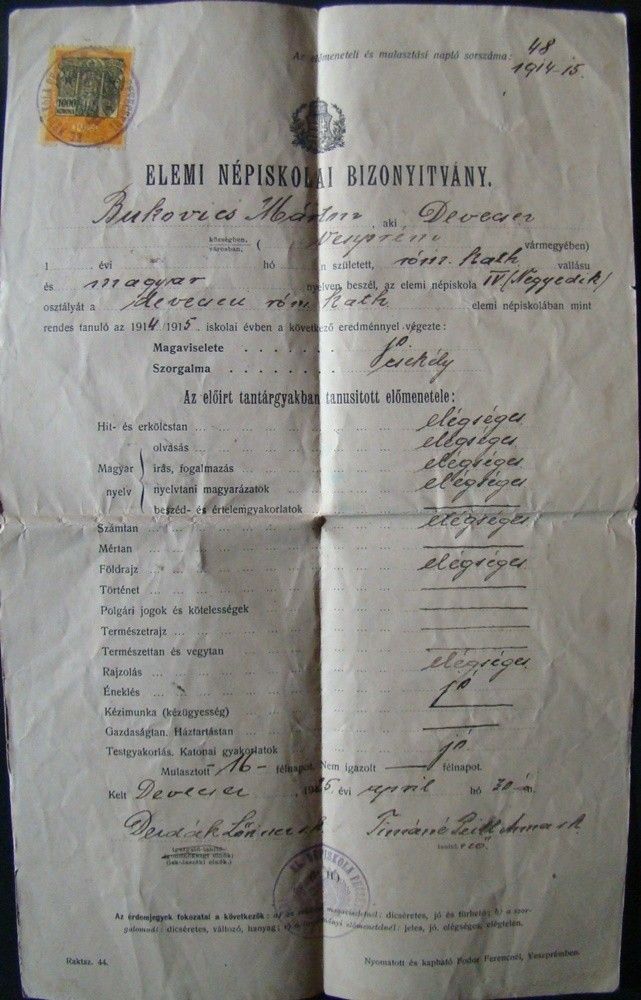 Az előmeneteli és mulasztási napló sorszáma: 48
1914-15.
1000
KORONA
ELEMI NÉPISKOLAI BIZONYITVÁNY.
Bukovics Márton, aki Devecser
községben, városban, (Veszprém vármegyében)
1 évi hó n született, róm. kath. vallásu
és magyar nyelven beszél, az elemi népiskola IV (Negyedik)
osztályát a devecseri róm. kath. elemi népiskolában mint
rendes tanuló az 1914/1915. iskolai évben a következő eredménnyel végezte:
Magaviselete . . . . . . . jó
Szorgalma . . . . . . . csekély
Az előirt tantárgyakban tanusitott előmenetele:
Hit- és erkölcstan elégséges
olvasás elégséges
Magyar irás, fogalmazás elégséges
nyelv nyelvtani magyarázatok elégséges
beszéd- és értelemgyakorlatok —
Számtan elégséges
Mértan —
Földrajz elégséges
Történet —
Polgári jogok és kötelességek —
Természetrajz —
Természettan és vegytan —
Rajzolás elégséges
Éneklés jó
Kézimunka (kézügyesség) —
Gazdaságtan. Háztartástan —
Testgyakorlás. Katonai gyakorlatok jó
Mulasztott 16 félnapot. Nem igazolt — félnapot.
Kelt Devecser, 1925 évi april hó 30-án.
Az érdemjegyek fokozatai a következők: a) magaviseletnél: dicséretes, jó és tűrhető; b) a szor-
galomnál: dicséretes, változó, hanyag; előmenetelnél: jeles, jó, elégséges, elégtelen.
Raktsz. 44.
Nyomatott és kapható Fodor Ferencnél, Veszprémben.